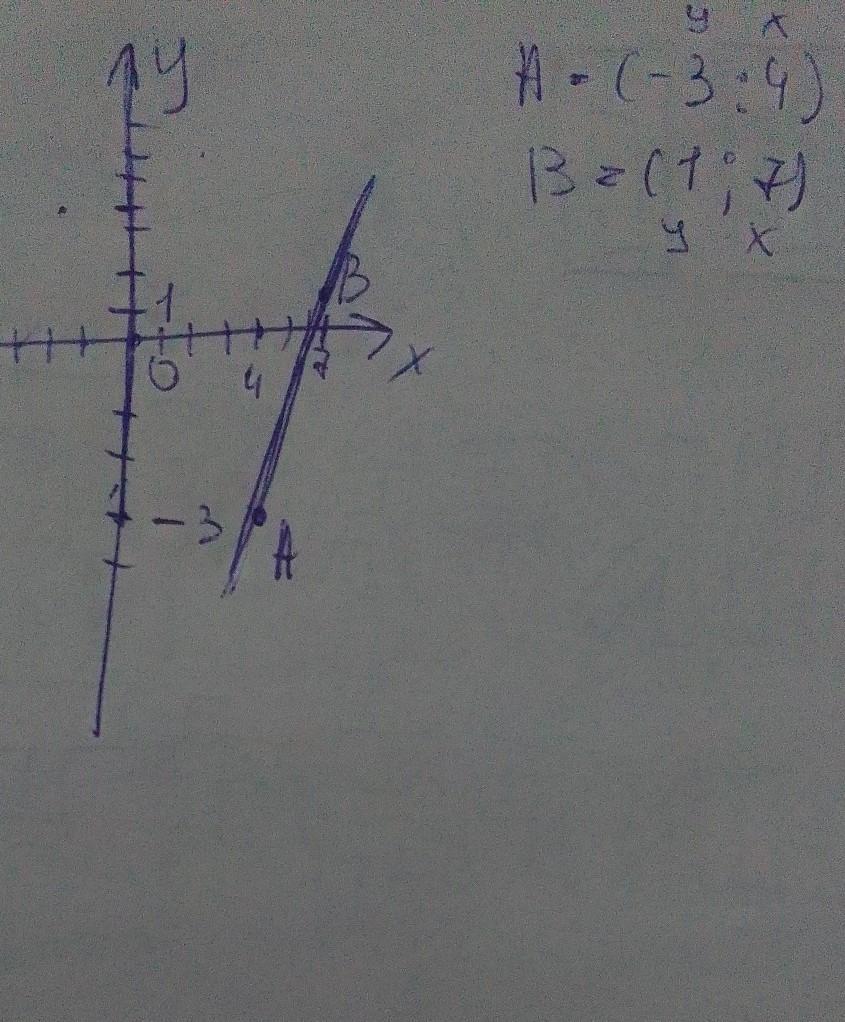 y x
A = (-3 ; 4)
B = (1 ; 7)
y x
y
B
1
0 4 7
x
-3
A